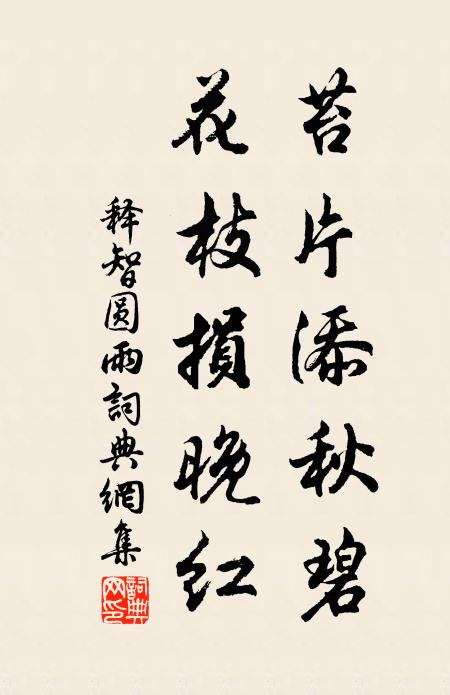 苔片添秋碧
花枝損晚红
释智圆雨詞典網集
詞典网印